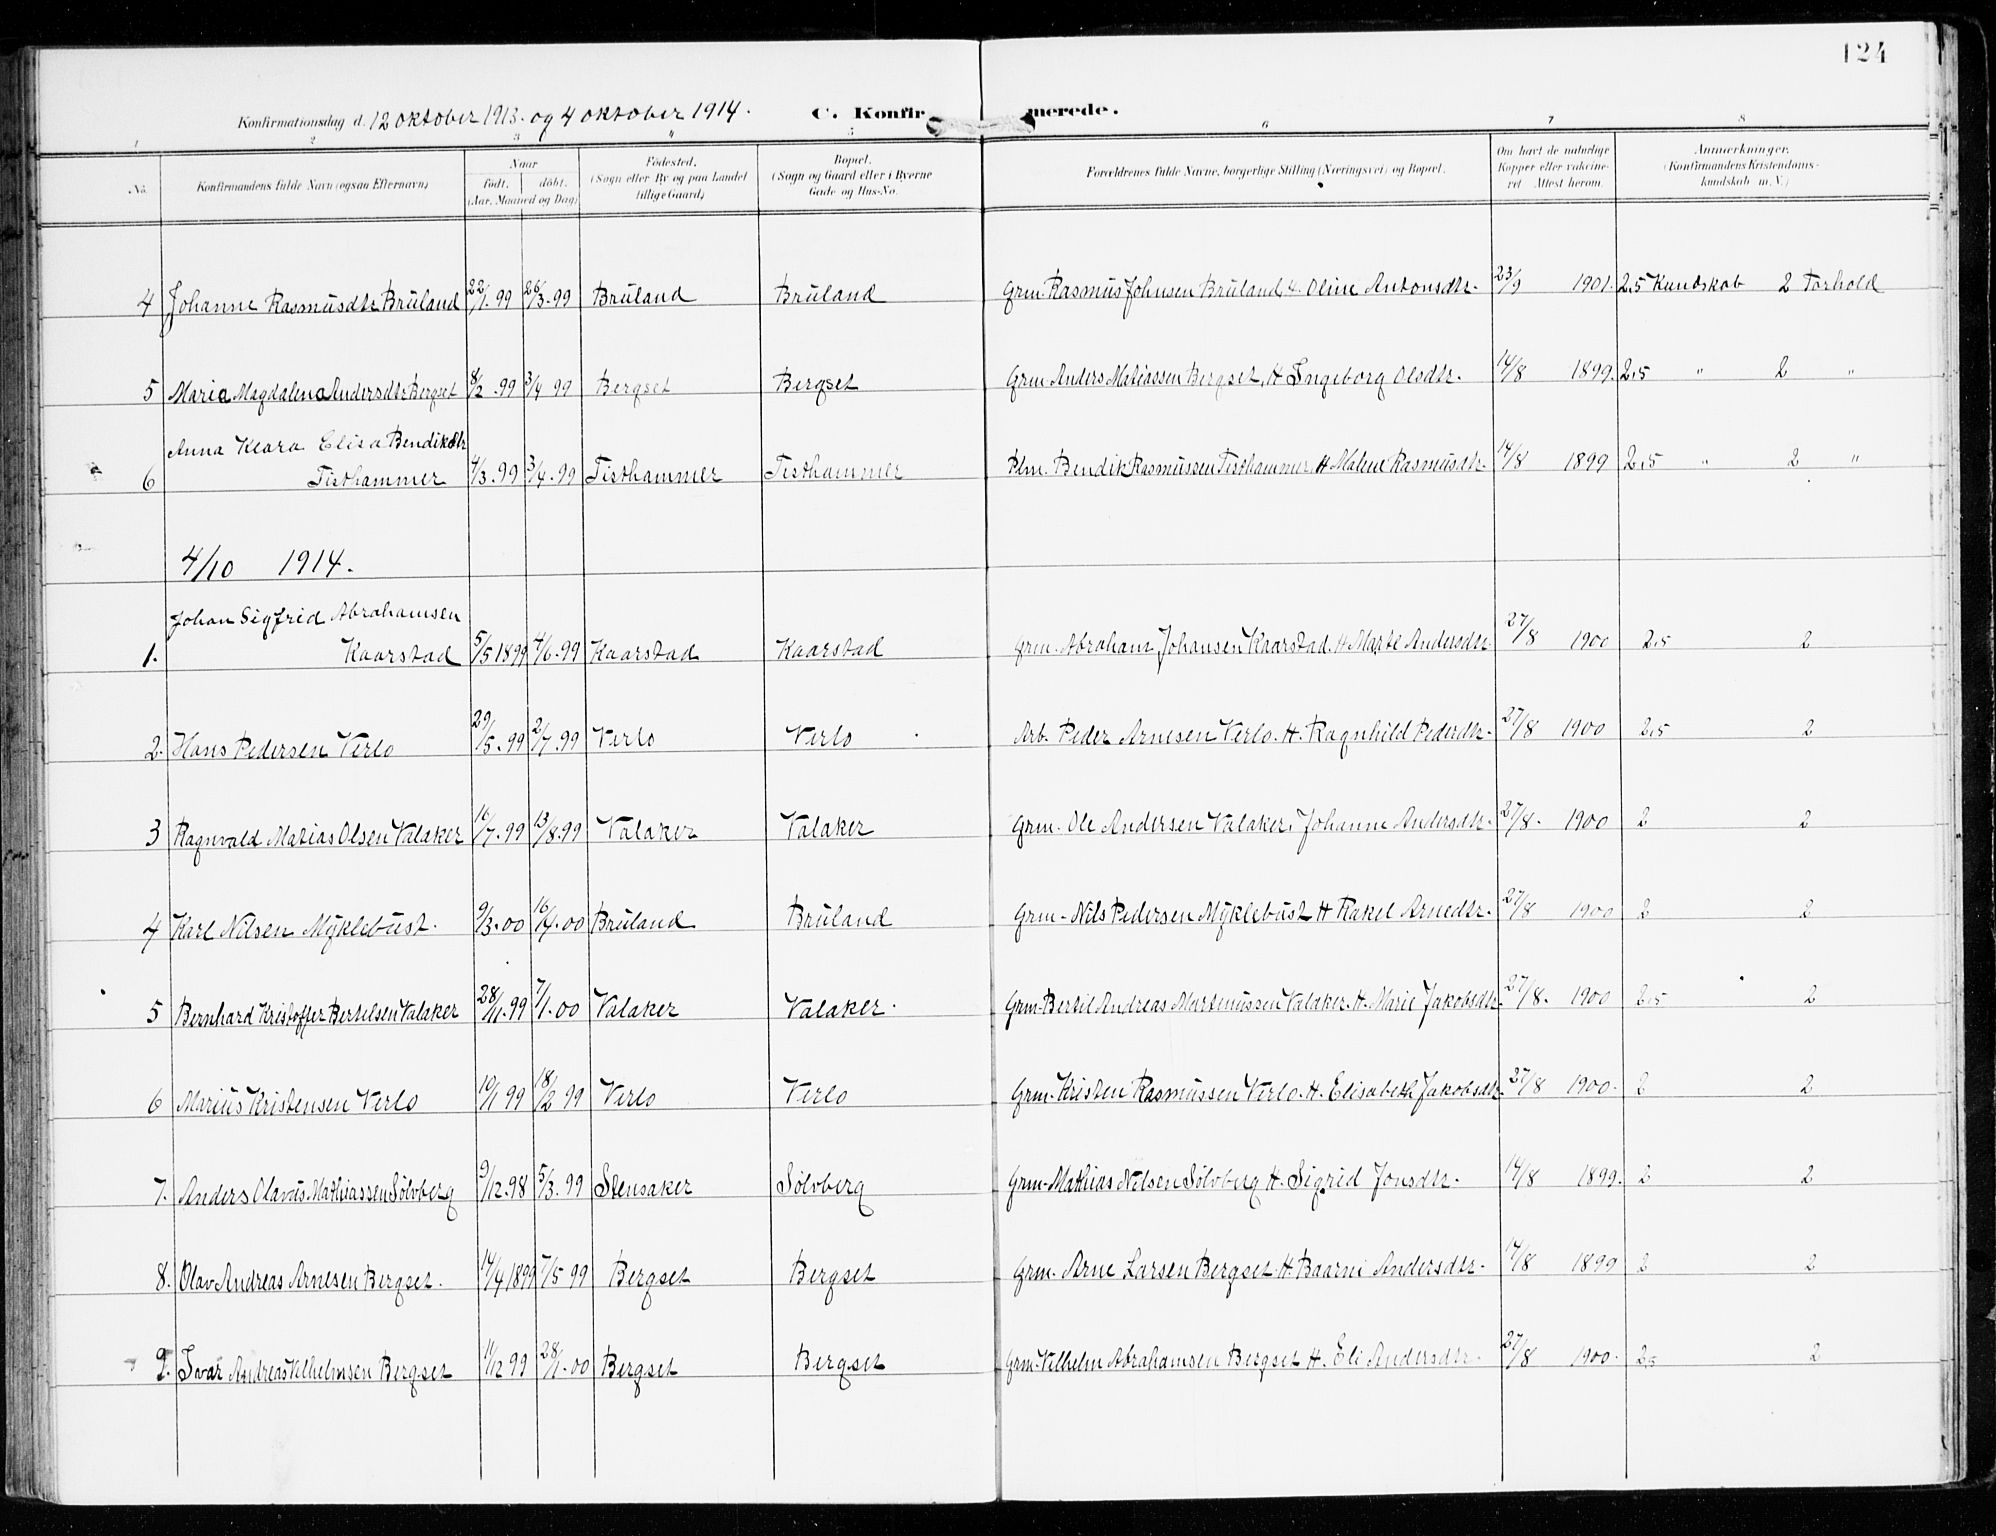 124
Konfirmationsdag d. 12 oktober 1913. og 4 oktober 1914. C. Konfirmerede.
1 2 3 " 5 6 7 8
No. Konfirmandens fulde Navn (ogsaa Efternavn) Naar født. døbt. (Aar, Maaned og Dag) Födested. (Sogn eller By og paa Landet tillige Gaard) Bopæl. (Sogn og Gaard eller i Byerne Gade og Hus-No. Forældrenes fulde Navne, borgerlige Stilling (Næringsvei) og Bopæl. Om havt de naturlige Kopper eller vakcineret. Attest herom. Anmærkninger. (Konfirmandens Kristendomskundskab m. V.)
4 Johanne Rasmusdtr Bruland 22/1.99 26/3.99 Bruland Bruland Grm. Rasmus Johnsen Bruland & Oline Antonsdtr. 23/9 1901. 2,5 Kundskab 2 Forhold
5 Marie Magdalena Andersdtr Bergset 8/2.99 3/4 99 Bergset Bergset Grm Anders Matiassen Bergset, H Ingeborg Olsdtr. 14/8 1899. 2,5 " 2 "
Anna Klara Elisa Bendiksdtr
6 Tisthammer 4/3.99 3/4.99 Tisthammer Tisthammer Plm. Bendik Rasmussen Tisthammer H Malene Rasmusdtr. 14/8 1899 2,5 " 2 "
4/10 1914.
Johan Sigfrid Abrahamsen
1. Kaarstad 5/5 1899 4/6.99 Kaarstad Kaarstad Grm. Abraham Johansen Kaarstad. H Marte Andersdtr. 27/8 1900 2,5 2
2. Hans Pedersen Verlo 29/5.99 2/7.99 Verlo Verlo Arb. Peder Arnesen Verlo. H. Ragnhild Pedersdtr. 27/8 1900 2,5 2
3 Ragnvald Matias Olsen Valaker 16/7.99 13/8.99 Valaker Valaker Grm. Ole Andersen Valaker. Johanne Andersdtr. 27/8. 1900 2 2
4 Karl Nilsen Myklebust. 9/3.00 16/4.00 Bruland Bruland Grm. Nils Pedersen Myklebust H Rakel Arnedtr. 27/8 1900 2 2
5 Bernhard Kristoffer Bertelsen Valaker 28/11.99 7/1.00 Valaker Valaker. Grm. Bertil Andreas Martinussen Valaker. H. Marie Jakobsdtr. 27/8. 1900 2,5 2
6 Marius Kristensen Verlo 10/1 99 18/2 99 Verlo Verlo Grm. Kristen Rasmussen Verlo. H. Elisabeth Jakobsdtr. 27/8 1900. 2 2
7. Anders Olavus Mathiassen Sölvberg 9/12.98 5/3.99 Stensaker Sölvberg Grm. Mathias Nilsen Sölvberg H. Sigrid Jonsdtr. 14/8 1899. 2 2
8. Olav Andreas Arnesen Bergset. 14/4 1899 7/5 99 Bergset Bergset Grm. Arne Larsen Bergset. H. Baarni Andersdtr. 14/8 1899 2 2
9. Ivar Andreas Vilhelmsen Bergset 11/12 99 28/1.00 Bergset Bergset Grm. Vilhelm Abrahamsen Bergset H. Eli Andersdtr. 27/8 1900. 2,5 2